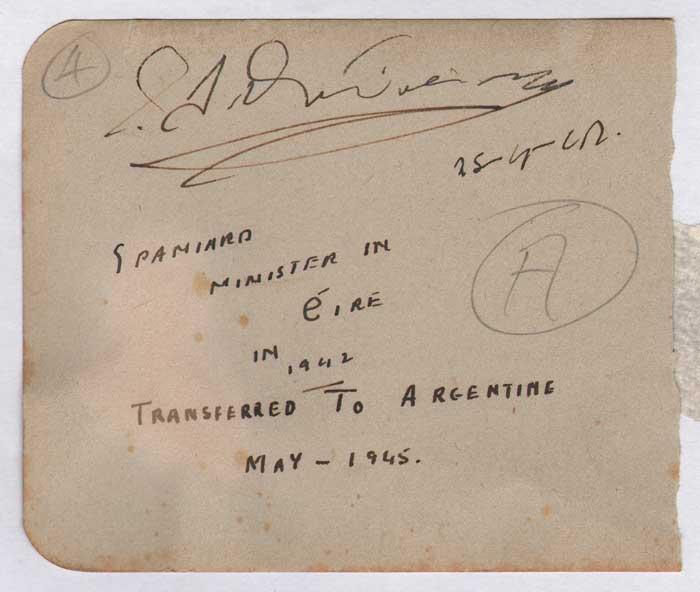 A
25-4-42.
SPANIARD
MINISTER IN
ÉIRE
IN 1942
A
TRANSFERRED TO ARGENTINE
MAY - 1945.